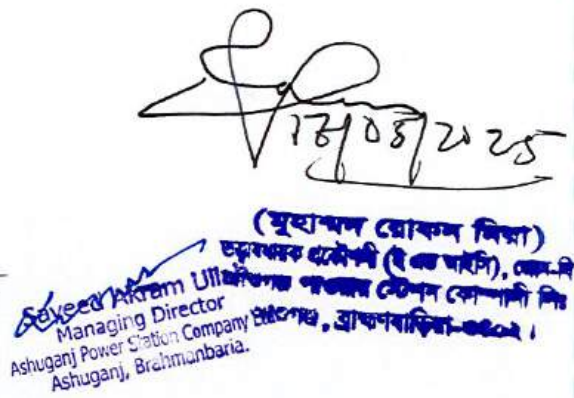 (মুহাম্মদ রোকন মিয়া)
তত্ত্বাবধায়ক প্রকৌশলী (ই এন্ড আইসি),
পাওয়ার স্টেশন কোম্পানী লিঃ
ব্রাহ্মণবাড়িয়া-৩৪০২।
Sayeed Akram Ulla
Managing Director
Ashuganj Power Station Company
Ashuganj, Brahmanbaria.